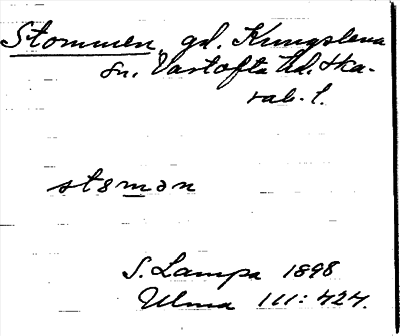 Stommen, gd. Kungslena
sn. Vartofta hd. Ska-
rab. l.
stomən
S. Lampa 1898
Ulma 111: 424.